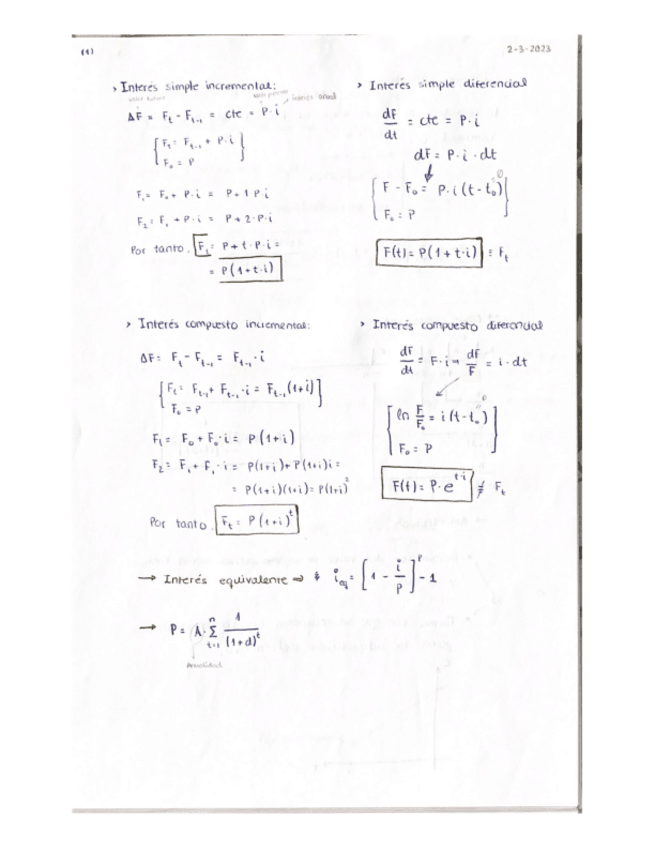 (1)
2-3-2023
> Interés simple incremental:
ΔF = F_t - F_{t-1} = cte = P·i
interés anual
[F_t = F_{t-1} + P·i
F_0 = P]
F_1 = F_0 + P·i = P+1·P·i
F_2 = F_1 + P·i = P+2·P·i
Por tanto, F_t = P+t·P·i =
= P(1+t·i)
> Interés simple diferencial
dF/dt = cte = P·i
dF = P·i·dt
[F - F_0 = P·i(t-t_0) 0
F_0 = P]
F(t) = P(1+t·i) ≡ F_t
> Interés compuesto incremental:
ΔF = F_t - F_{t-1} = F_{t-1}·i
[F_t = F_{t-1} + F_{t-1}·i = F_{t-1}(1+i)
F_0 = P]
F_1 = F_0 + F_0·i = P(1+i)
F_2 = F_1 + F_1·i = P(1+i)+P(1+i)i =
= P(1+i)(1+i) = P(1+i)^2
Por tanto, F_t = P(1+i)^t
> Interés compuesto diferencial
dF/dt = F·i → dF/F = i·dt
[ln F/F_0 = i(t-t_0) 0
F_0 = P]
F(t) = P·e^{t·i} ≠ F_t
→ Interés equivalente ⇒ i_{eq} = [1 - i/P]^P - 1
→ P = A·Σ_{t=1}^{n} 1/(1+d)^t
Anualidad